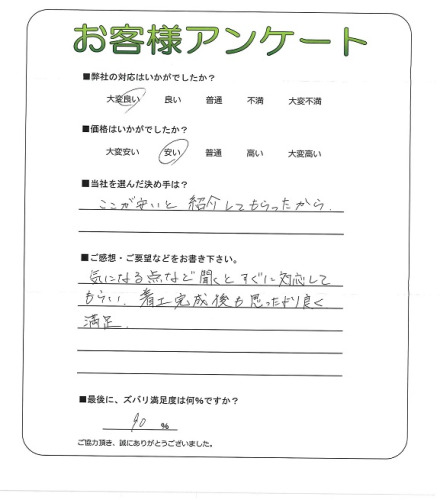 お客様アンケート
■弊社の対応はいかがでしたか?
大変良い 良い 普通 不満 大変不満
■価格はいかがでしたか?
大変安い 安い 普通 高い 大変高い
■当社を選んだ決め手は?
ここが安いと 紹介してもらったから.
■ご感想・ご要望などをお書き下さい。
気になる点など聞くとすぐに対応して
もらい、着工完成後も思ったより良く
満足.
■最後に、ズバリ満足度は何%ですか?
90 %
ご協力頂き、誠にありがとうございました。